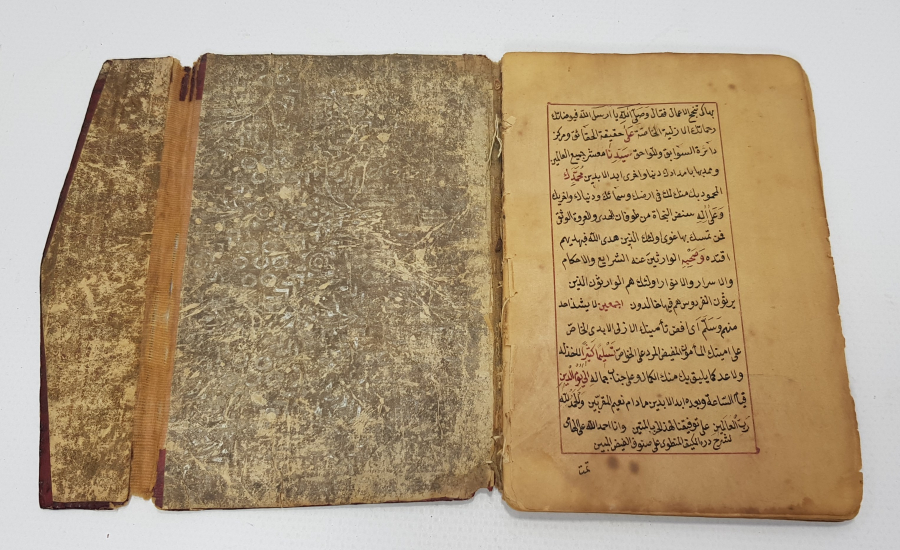 بها كل نجح الاعمال فقال وصلى الله يا ارسل الله فيوضاتك
رحماتك الازلية الخاصة على حقيقة الحقائق ومركز
دائرة السوابق واللواحق سيدنا معشر جميع العالمين
وممديها بامدادك دنيا واخرى ابد الابدين محمدك
المحمود بك منك لك في ارضك وسمائك ودنياك واخريك
وعلى اله سفن النجاة من طوفان الهدى والعروة الوثقى
فمن تمسك بها اولئك الذين هدى الله فبهديهم
اقتده وصحبه الوارثين عنه الشرايع والاحكام
والاسرار والانوار اولئك هم الوارثون الذين
يرثون الفردوس هم فيها خالدون اجمعين لا يشذ احد
منهم وسلم اي افض تأمينك الازلي الابدي الخاص
على امينك المأمون المفيض الممد على الخواص تسليما كثيرا لا حد له
ولا عد كما يليق بك منك الكمال وعلى جناب جماله الى يوم الدين
قيام الساعة وبعده ابد الابدين ما دام نعيم المقربين والحمد لله
رب العالمين على توفيقنا لهذا المتين وانا احمد الله على
لشرح درء الكيف المنطوي على صنوف الفيض المبين
تمت